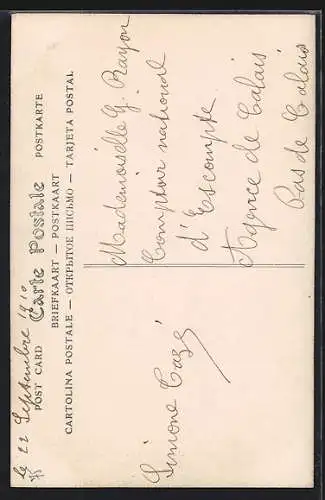 Le 22 Septembre 1910
POST CARD Carte Postale POSTKARTE
BRIEFKAART — POSTKAART
CARTOLINA POSTALE — ОТКРЫТОЕ ПИСЬМО — TARJETA POSTAL
Simone Cazé
Mademoiselle G. Rayon
Comptoir national
d'Escompte
Agence de Calais
Pas de Calais